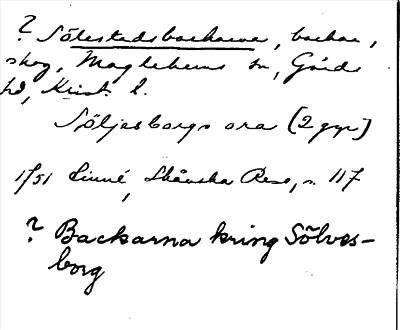 ? Sölestadsbackarna, backar,
skog, Maglehems sn, Gärds
hd, Krist. l.
Söljesborgs ora (2 ggr)
1751 Linné, Skånska Resa, s. 117
? Backarna kring Sölves-
borg